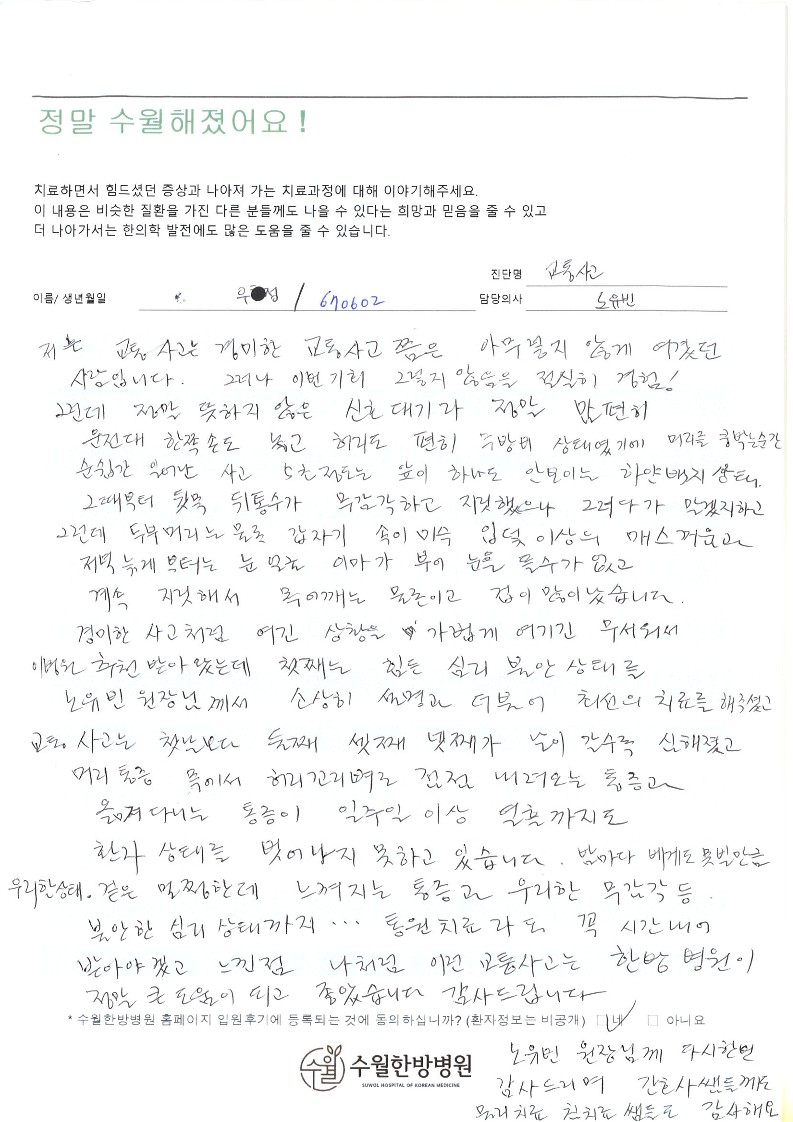 정말 수월해졌어요!
치료하면서 힘드셨던 증상과 나아져 가는 치료과정에 대해 이야기해주세요.
이 내용은 비슷한 질환을 가진 다른 분들께도 나을 수 있다는 희망과 믿음을 줄 수 있고
더 나아가서는 한의학 발전에도 많은 도움을 줄 수 있습니다.
진단명 교통사고
이름/ 생년월일 우 정 / 670602 담당의사 노유빈
저는 교통사고는 경미한 교통사고 쯤은 아무렇지 않게 여겼던
사람입니다. 그러나 이번 기회 그렇지 않음을 적식히 경험!
그런데 정말 뜻하지 않은 신호대기라 정말 맘편히
운전대 한쪽손도 놓고 허리도 편히 무방비 상태였기에 머리를 쿵박는순간
순식간 일어난 사고 5초정도는 앞이 하나도 안보이는 하얀백지상태.
그때부터 뒷목 뒤통수가 무감각하고 지릿했으나 그러다가 말겠지하고
그런데 두부머리는 물론 갑자기 속이 미슥 입덧 이상의 매스꺼움과
저녁 늦게 부터는 눈 이마가 부어 눈을 뜰수가 없고
계속 지릿해서 목어깨는 물론이고 겁이 많이 났습니다.
경미한 사고처럼 여긴 상황을 가볍게 여기긴 무서워서
이병원 추천 받아 왔는데 첫째는 힘든 심리 불안 상태를
노유빈 원장님께서 소상히 설명과 더불어 최선의 치료를 해주셨고
교통 사고는 첫날보다 둘째 셋째 넷째가 날이 갈수록 심해졌고
머리 통증 목에서 허리꼬리뼈로 점점 내려오는 통증과
옮겨 다니는 통증이 일주일 이상 열흘까지도
환자 상태를 벗어나지 못하고 있습니다. 밤마다 베게도 못빌만큼
우리한상태. 겉은 멀쩡한데 느껴지는 통증과 우리한 무감각 등.
불안한 심리 상태까지 ... 통원치료라도 꼭 시간내어
받아야겠고 느낀점 나처럼 이런 교통사고는 한방 병원이
정말 큰 도움이 되고 좋았습니다 감사드립니다
* 수월한방병원 홈페이지 입원후기에 등록되는 것에 동의하십니까? (환자정보는 비공개) ☑네 □ 아니요
노유빈 원장님께 다시한번
감사드리며 간호사쌤들께도
물리치료 쌤들도 감사해요
수월 수월한방병원
SUWOL HOSPITAL OF KOREAN MEDICINE